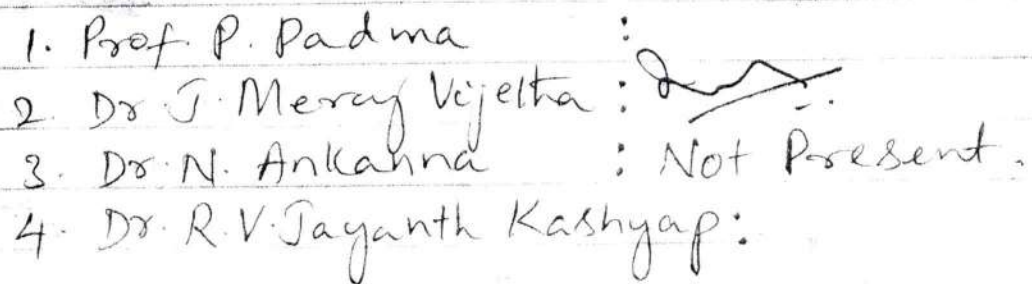 1. Prof. P. Padma :
2. Dr J. Mercy Vijeltha :
3. Dr. N. Ankanna : Not Present.
4. Dr. R.V. Jayanth Kashyap :